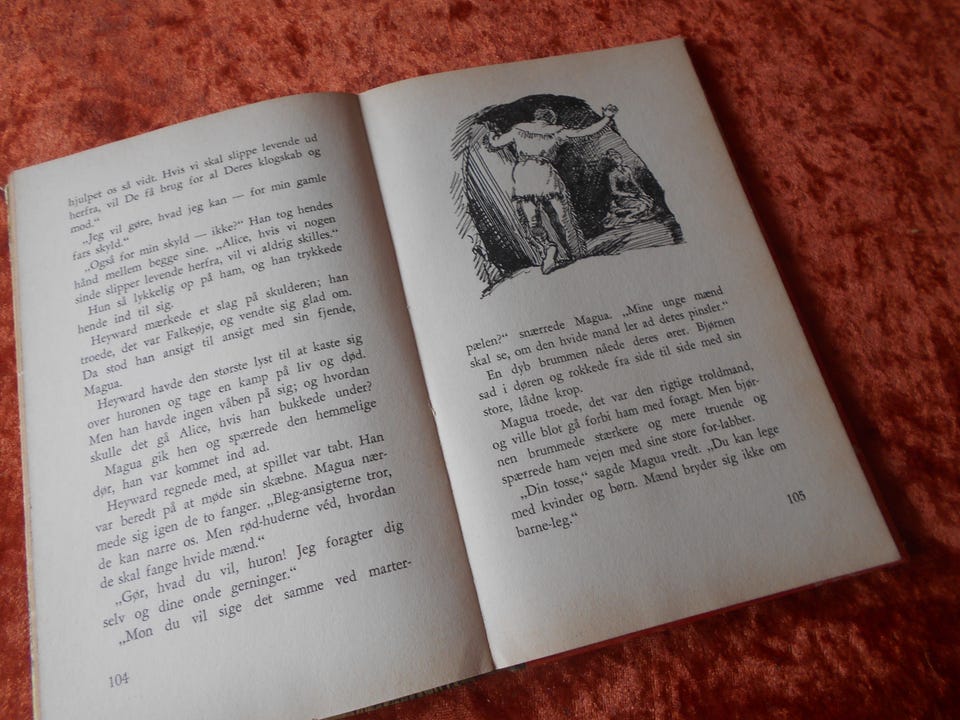 hjulpet os så vidt. Hvis vi skal slippe levende ud
herfra, vil De få brug for al Deres klogskab og
mod."
„Jeg vil gøre, hvad jeg kan — for min gamle
fars skyld."
„Også for min skyld — ikke?" Han tog hendes
hånd mellem begge sine. „Alice, hvis vi nogen
sinde slipper levende herfra, vil vi aldrig skilles."
Hun så lykkelig op på ham, og han trykkede
hende ind til sig.
Heyward mærkede et slag på skulderen; han
troede, det var Falkeøje, og vendte sig glad om.
Da stod han ansigt til ansigt med sin fjende,
Magua.
Heyward havde den største lyst til at kaste sig
over huronen og tage en kamp på liv og død.
Men han havde ingen våben på sig; og hvordan
skulle det gå Alice, hvis han bukkede under?
Magua gik hen og spærrede den hemmelige
dør, han var kommet ind ad.
Heyward regnede med, at spillet var tabt. Han
var beredt på at møde sin skæbne. Magua nær-
mede sig igen de to fanger. „Bleg-ansigterne tror,
de kan narre os. Men rød-huderne véd, hvordan
de skal fange hvide mænd."
„Gør, hvad du vil, huron! Jeg foragter dig
selv og dine onde gerninger."
„Mon du vil sige det samme ved marter-
104
pælen?" snærrede Magua. „Mine unge mænd
skal se, om den hvide mand ler ad deres pinsler."
En dyb brummen nåede deres ører. Bjørnen
sad i døren og rokkede fra side til side med sin
store, lådne krop.
Magua troede, det var den rigtige troldmand,
og ville blot gå forbi ham med foragt. Men bjør-
nen brummede stærkere og mere truende og
spærrede ham vejen med sine store for-labber.
„Din tosse," sagde Magua vredt. „Du kan lege
med kvinder og børn. Mænd bryder sig ikke om
barne-leg."
105